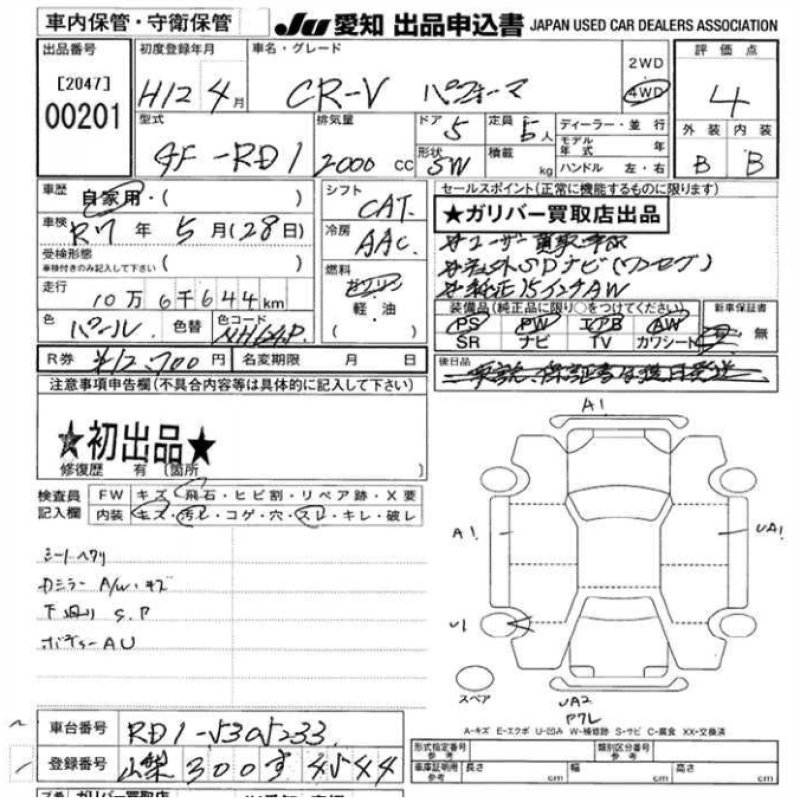 車内保管・守衛保管 JU 愛知 出品申込書 JAPAN USED CAR DEALERS ASSOCIATION
出品番号 初度登録年月 車名・グレード 評価点
[2047] 2WD
00201 H12 4月 CR-V パフォーマ 4WD 4
型式 排気量 ドア 5 定員 5人 ディーラー・並行 外装 内装
モデル年式 年
GF-RD1 2000cc 形状 SW 積載 kg ハンドル 左・右 B B
車歴 自家用・( ) シフト CAT. セールスポイント(正常に機能するものに限ります)
★ガリバー買取店出品
車検 R7年 5月(28日) 冷房 AAC.
受検形態 ( )
車検付きのみ記入して下さい
燃料 ガソリン 軽・油 ( ・ )
#社外SDナビ(ワンセグ)
#純正15インチAW
走行 10万6千644km
装備品(純正品に限り○をつけてください) 新車保証書
PS PW エアB AW 有 無
SR ナビ TV カワシート
色 パール. 色替 色コード NH624P.
R券 ¥12,700円 名変期限 月 日
後日品
注意事項申告欄(不具合内容等は具体的に記入して下さい)
★初出品★
修復歴 有 (箇所 )
検査員 FW キズ・飛石・ヒビ割・リペア跡・X要
記入欄 内装 キズ・汚レ・コゲ・穴・スレ・キレ・破レ
シートヘタリ
カミラー A/W・キズ
下廻り S.P
ボディーAU
A1
A1
UA1
U1
スペア
UA2
P7L
A-キズ E-エクボ U-凹み W-補修跡 S-サビ C-腐食 XX-交換済
車台番号 RD1-5305233
登録番号 山梨 300す 4544
形式指定番号 参考 類別区分番号 参考
車庫証明用 参考 長さ cm 幅 cm 高さ cm